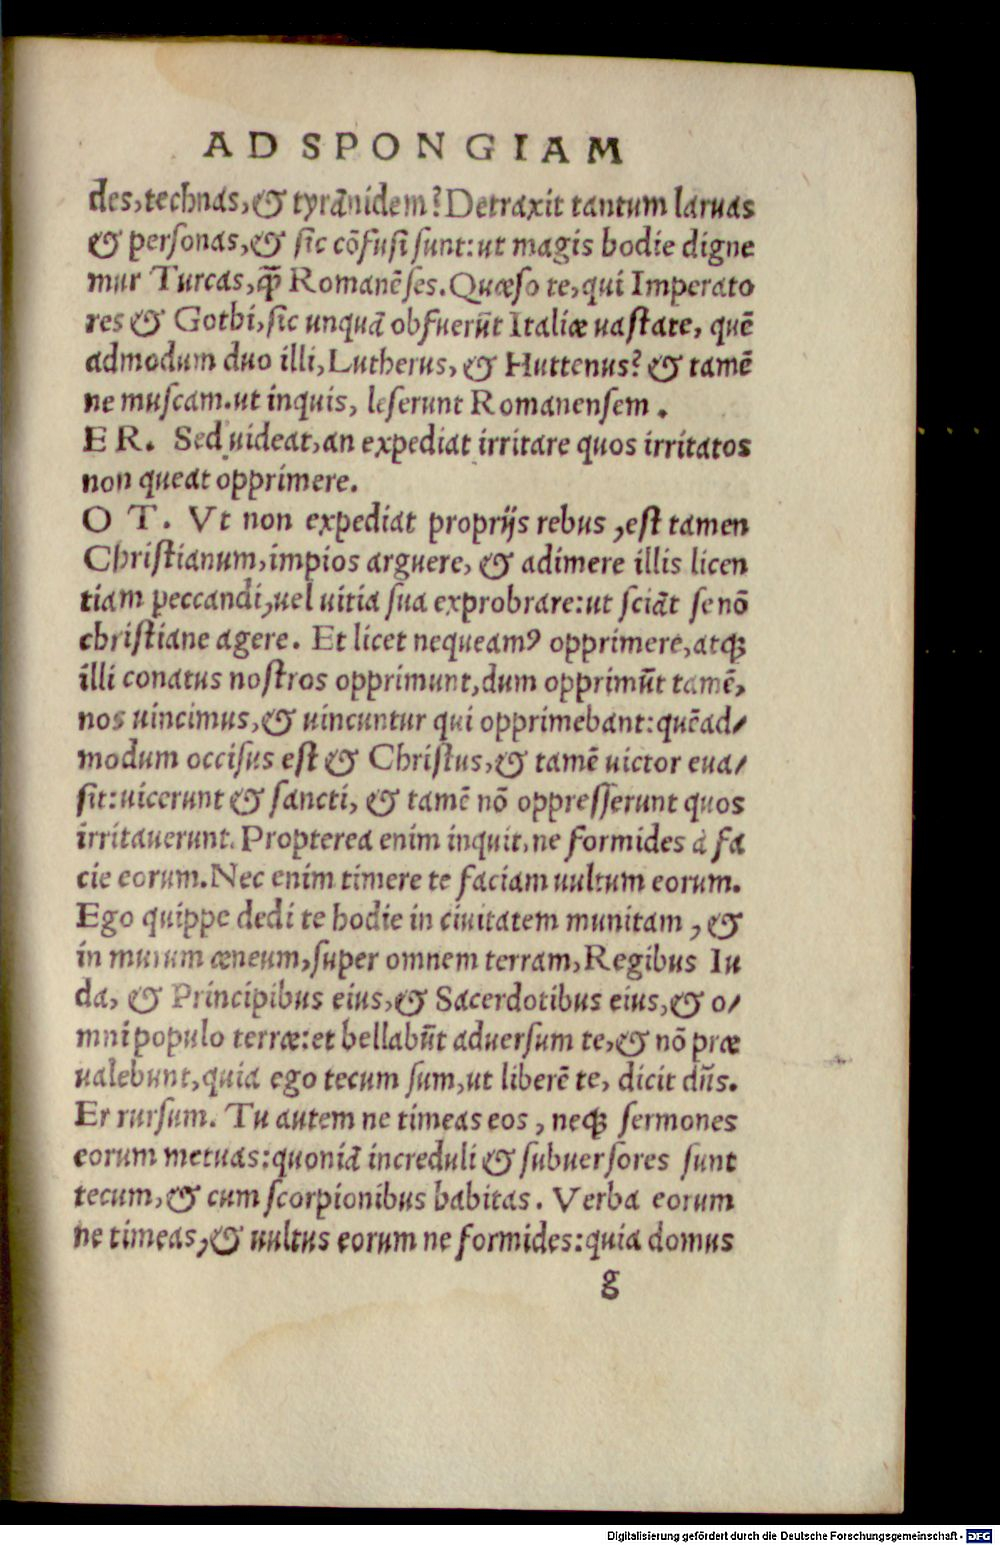 AD SPONGIAM
des, technas, & tyrānidem? Detraxit tantum laruas
& personas, & sic cōfusi sunt: ut magis hodie digne
mur Turcas, q̄ Romanēses. Quæso te, qui Imperato
res & Gothi, sic unquā obfuerūt Italiæ uastate, quē
admodum duo illi, Lutherus, & Huttenus? & tamē
ne muscam. ut inquis, leserunt Romanensem.
ER. Sed uideat, an expediat irritare quos irritatos
non queat opprimere.
OT. Vt non expediat proprijs rebus, est tamen
Christianum, impios arguere, & adimere illis licen
tiam peccandi, uel uitia sua exprobrare: ut sciāt se nō
christiane agere. Et licet nequeamꝰ opprimere, atqꝫ
illi conatus nostros opprimunt, dum opprimūt tamē,
nos uincimus, & uincuntur qui opprimebant: quēad/
modum occisus est & Christus, & tamē uictor eua/
sit: uicerunt & sancti, & tamē nō oppresserunt quos
irritauerunt. Propterea enim inquit, ne formides à fa
cie eorum. Nec enim timere te faciam uultum eorum.
Ego quippe dedi te hodie in ciuitatem munitam, &
in murum æneum, super omnem terram, Regibus Iu
da, & Principibus eius, & Sacerdotibus eius, & o/
mni populo terræ: et bellabūt aduersum te, & nō præ
ualebunt, quia ego tecum sum, ut liberē te, dicit dn̄s.
Et rursum. Tu autem ne timeas eos, neqꝫ sermones
eorum metuas: quoniā increduli & subuersores sunt
tecum, & cum scorpionibus habitas. Verba eorum
ne timeas, & uultus eorum ne formides: quia domus
g
Digitalisierung gefördert durch die Deutsche Forschungsgemeinschaft - DFG